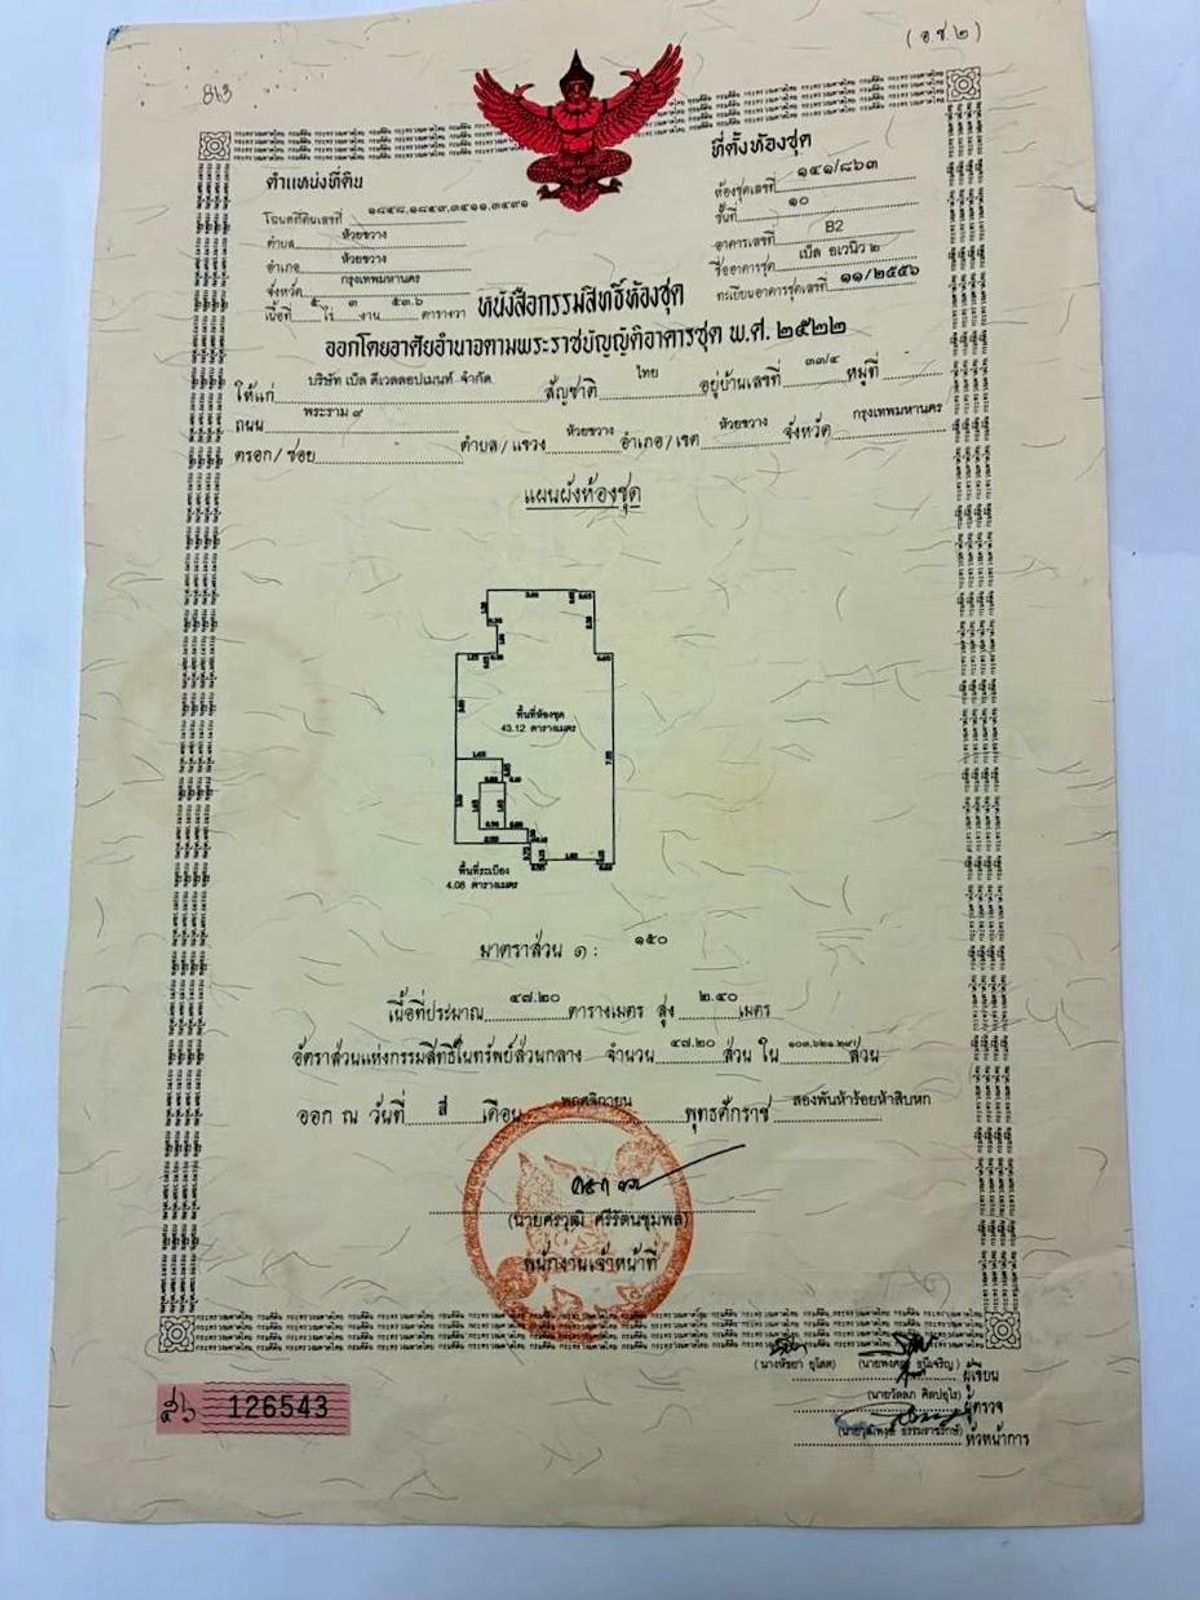 ( อ.ช.๒ )
813
ตำแหน่งที่ดิน
โฉนดที่ดินเลขที่ ๑๘๕๘,๑๘๕๙,๓๕๑๑,๓๕๙๑
ตำบล ห้วยขวาง
อำเภอ ห้วยขวาง
จังหวัด กรุงเทพมหานคร
เนื้อที่ ๕ ไร่ ๓ งาน ๕๓.๖ ตารางวา
ที่ตั้งห้องชุด
ห้องชุดเลขที่ ๑๕๑/๘๖๓
ชั้นที่ ๑๐
อาคารเลขที่ B2
ชื่ออาคารชุด เบ็ล อเวนิว ๒
ทะเบียนอาคารชุดเลขที่ ๑๑/๒๕๕๖
หนังสือกรรมสิทธิ์ห้องชุด
ออกโดยอาศัยอำนาจตามพระราชบัญญัติอาคารชุด พ.ศ. ๒๕๒๒
ให้แก่ บริษัท เบ็ล ดีเวลลอปเมนท์ จำกัด สัญชาติ ไทย อยู่บ้านเลขที่ ๓๓/๔ หมู่ที่
ถนน พระราม ๙
ตรอก/ซอย ตำบล/แขวง ห้วยขวาง อำเภอ/เขต ห้วยขวาง จังหวัด กรุงเทพมหานคร
แผนผังห้องชุด
พื้นที่ห้องชุด
43.12 ตารางเมตร
พื้นที่ระเบียง
4.08 ตารางเมตร
มาตราส่วน ๑ : ๑๕๐
เนื้อที่ประมาณ ๔๗.๒๐ ตารางเมตร สูง ๒.๔๐ เมตร
อัตราส่วนแห่งกรรมสิทธิ์ในทรัพย์ส่วนกลาง จำนวน ๔๗.๒๐ ส่วน ใน ๑๐๓,๖๒๑.๒๙ ส่วน
ออก ณ วันที่ สี่ เดือน พฤศจิกายน พุทธศักราช สองพันห้าร้อยห้าสิบหก
(นายศรวุฒิ ศรีรัตนชุมพล)
พนักงานเจ้าหน้าที่
๕๖ 126543
ผู้เขียน
ผู้ตรวจ
หัวหน้าการ